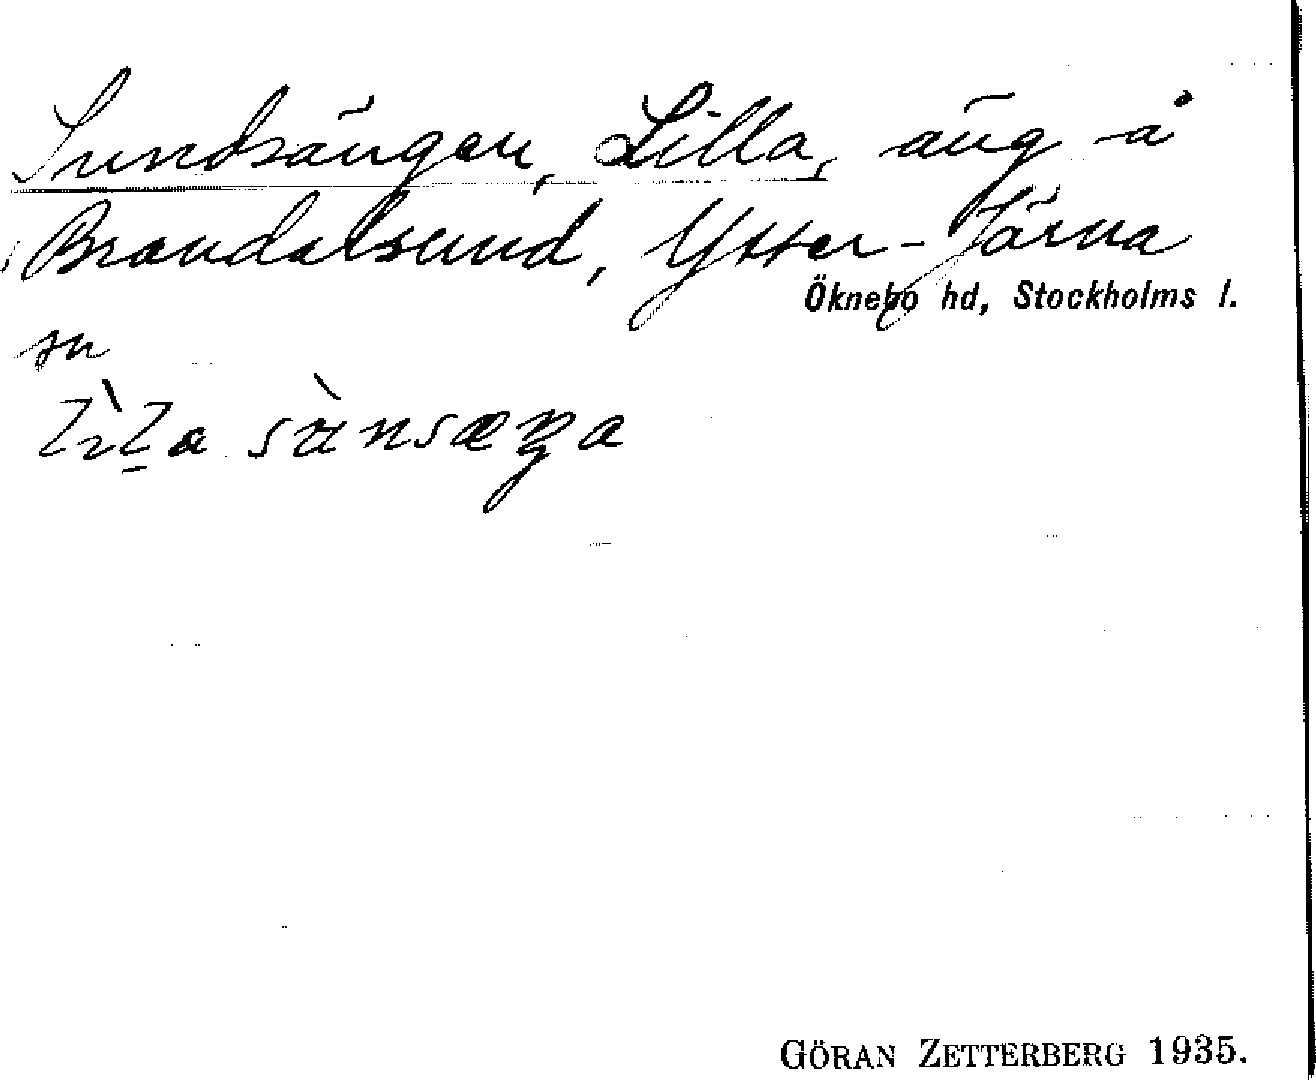 Sundsängen, Lilla, äng å
Brandalsund, Ytter-Järna
Öknebo hd, Stockholms l.
sn
GÖRAN ZETTERBERG 1935.